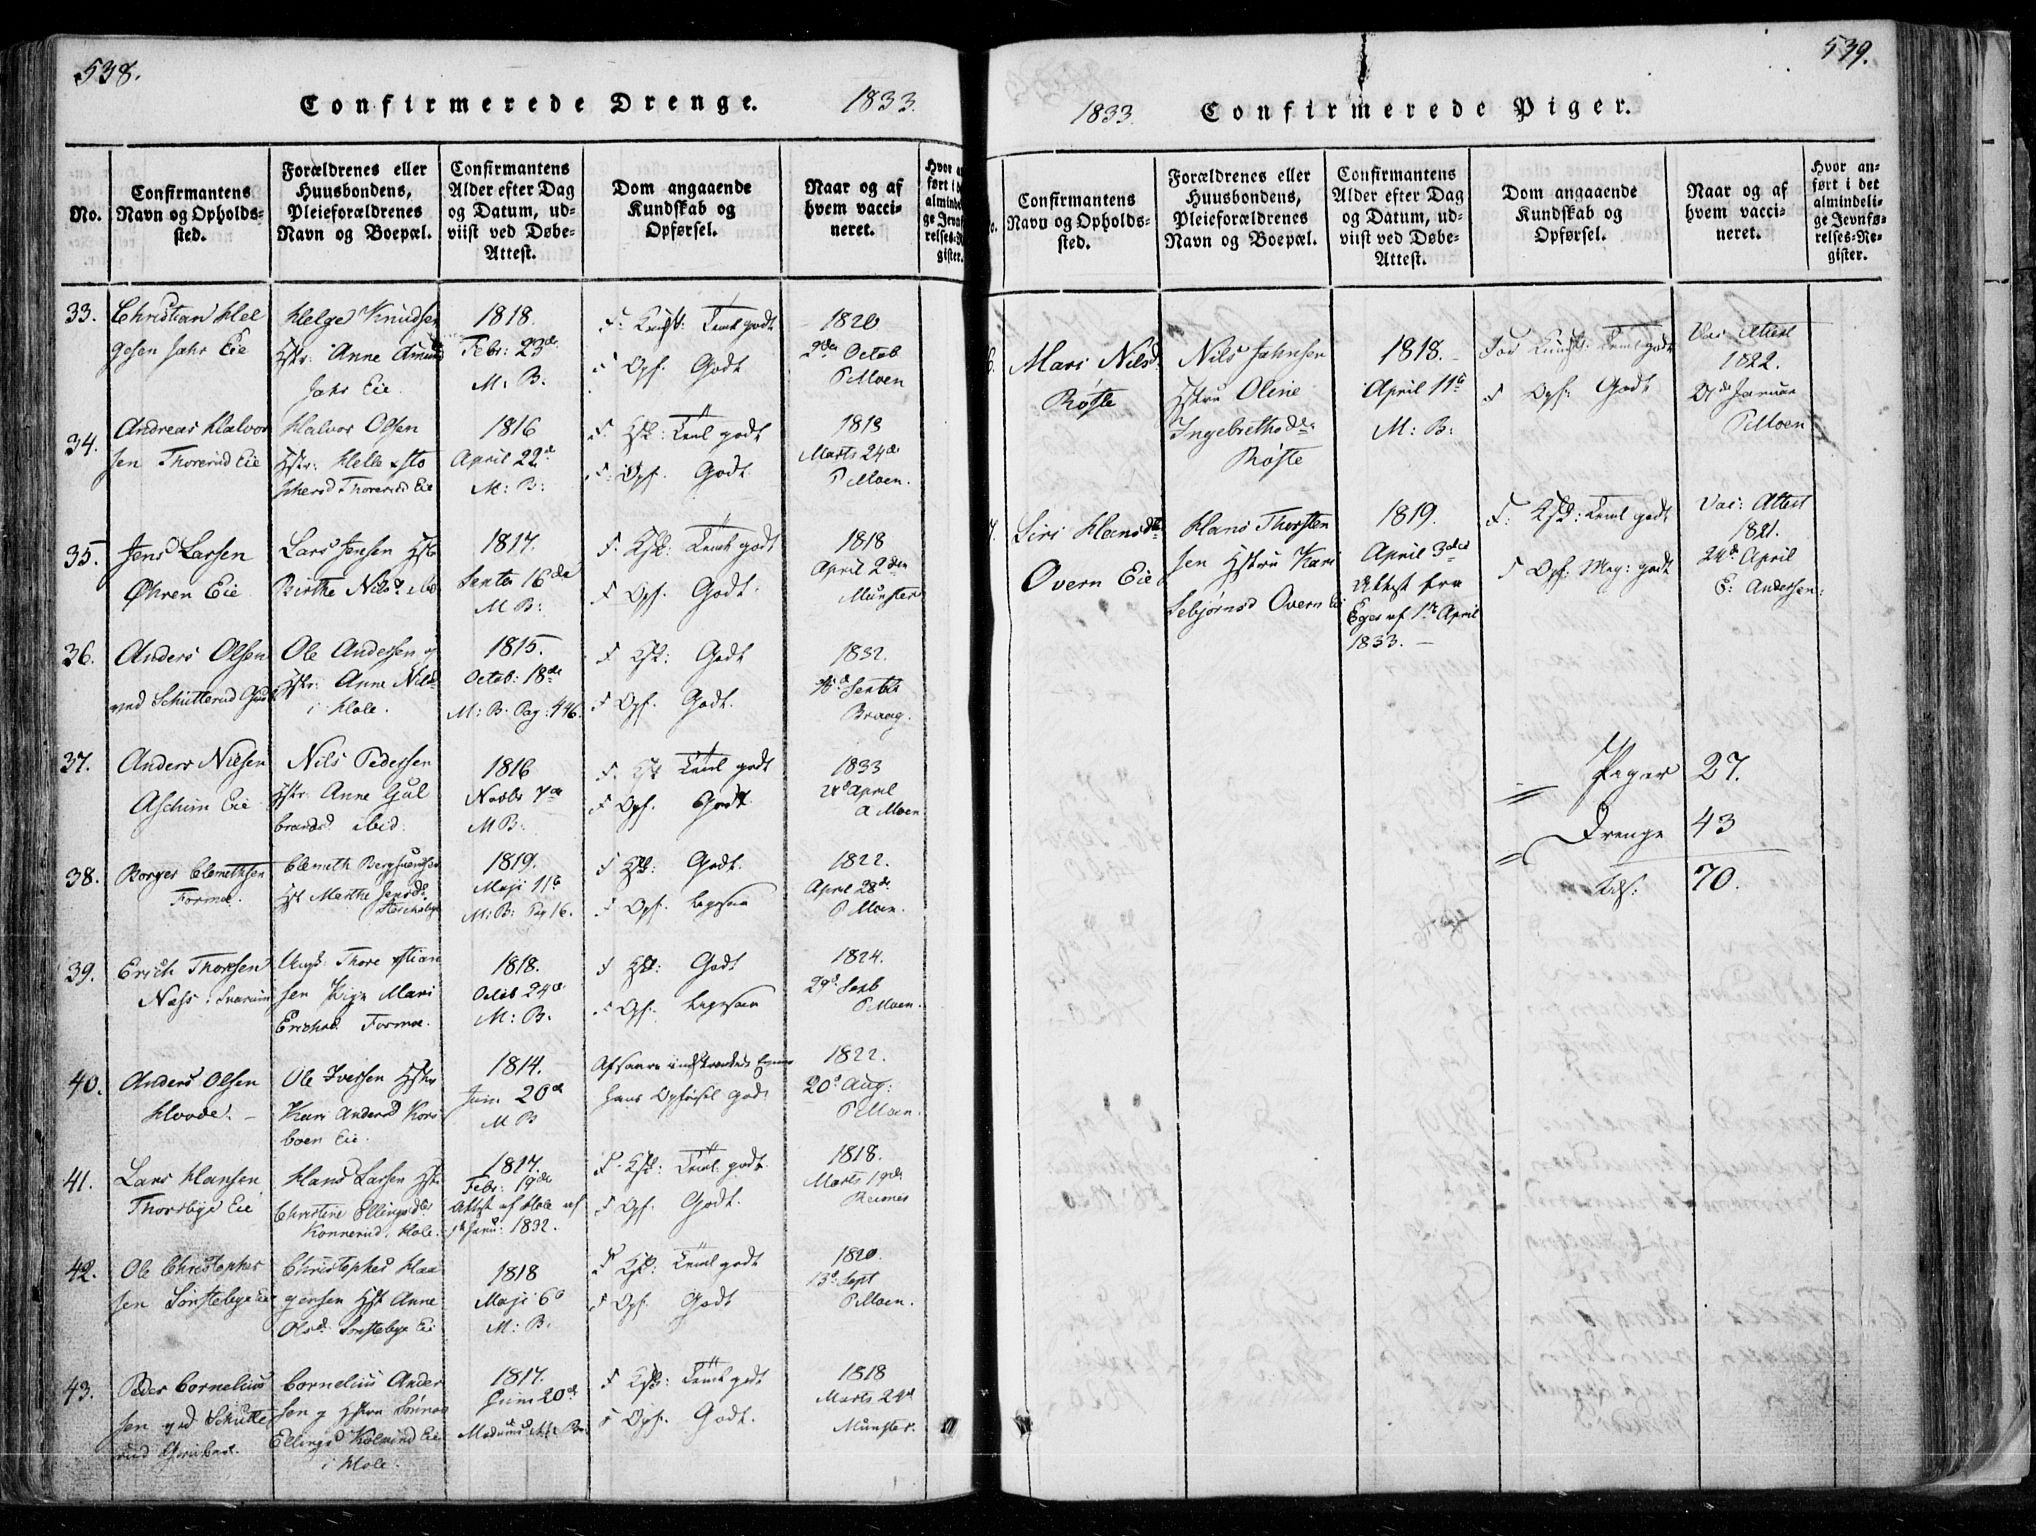 538.
Confirmerede Drenge. 1833.
No.
Confirmantens Navn og Opholds-sted.
Forældrenes eller Huusbondens, Pleieforældrenes Navn og Boepæl.
Confirmantens Alder efter Dag og Datum, ud-viist ved Døbe-Attest.
Dom angaaende Kundskab og Opførsel.
Naar og af hvem vacci-neret.
33.
Christian Hel
gesen Jahr Eie
Helge Knudsen
Hstr: Anne Amund
Jahr Eie.
1818.
Febr: 23de
M: B.
F: Kundsk: Teml godt
F Opf: Godt
1820
2den Octob
P Moen
34.
Andreas Halvor
sen Thorerud Eie
Halvor Olsen
Hstr: Helle
Thorerud Eie
1816
April 22de
M: B:
F. Ksk: Teml godt
F: Opf. Godt
1813
Marts 24de
P Moen.
35.
Jens Larsen
Øhren Eie
Lars Jensen Hstr
Birthe Nilsd. ibid
1817.
Septer 16de
M B:
F. Ksk: Teml godt
F Opf. Godt.
1818
April 2den
Münster
36.
Anders Olsen
ved Schütterud
Ole Andersen og
Hstr: Anne Nilsd
i Hole.
1815.
Octob: 18de
M: B. Pag: 446.
F Ksk: Godt
F Opf. Godt.
1832.
Septbr
Braag.
37.
Anders Nielsen
Aschim Eie
Nils Pedersen
Hstr: Anne Gul
brandsd ibid.
1816
Novbr 7de
M B:
F. Ksk Teml godt
F Opf. Godt.
1833
April
A Moen
38.
Borger Clemethsen
Formoe.
Clemeth
Hst Marthe Jensd.
1819.
Maji 11te
M: B: Pag 16.
F Ksk: Godt.
F Opf.
1822.
April 28de
P Moen.
39.
Erich Thoresen
Næss i Snarum
Ungk: Thore
sen Pige Mari
Erichsd. Formoe.
1818.
Octob 24de
M: B.
F Ksk: Godt
F Opf:
1824.
29de Septb
P Moen.
40.
Anders Olsen
Hovde. –
Ole Iversen Hstr
Kari Andersd Kors
boen Eie.
1814.
Juni 20de
M B
hans Opførsel godt
1822.
20d Aug:
P Moen.
41.
Lars Hansen
Thorsbye Eie
Hans Larsen Hstr
Christine Ellingsdtr
Konnerud. Hole.
1817.
Febr: 19de
Attest af Hole af
Janu: 1832.
F. Ksk: Teml: godt.
F Opf. Godt.
1818.
Marts 19de
42.
Ole Christopher
sen Sønstebye Eie
Christopher Haa
gensen Hst Anne
Olsd. Sønstebye Eie
1818
Maji 6te
M: B.
F Ksk: Teml godt
F Opf. Godt
1820.
13d Sept
P Moen.
43.
Peder Cornelius
sen ved Schütte
rud
Cornelius Ander
sen og Hstru
Ellingsd Eie
i Hole.
1817.
Juni 20de
F Ksk: Teml godt
F Opf. Godt.
1818
Marts 24d
Münster.
539.
1833. Confirmerede Piger.
Confirmantens Navn og Opholds-sted.
Forældrenes eller Huusbondens, Pleieforældrenes Navn og Boepæl.
Confirmantens Alder efter Dag og Datum, ud-viist ved Døbe-Attest.
Dom angaaende Kundskab og Opførsel.
Naar og af hvem vacci-neret.
Hvor an-ført i det almindeli-ge Jevnfø-relses-Re-gister.
Mari Nilsd.
Røste
Nils Jahnsen
Hstru Oline
Ingebrethsd
Røste
1818.
April 11te
M: B:
For Kundsk: Teml godt
F Opf: Godt
Vac: Attest
1822.
Januar
P Moen
Siri Hansdtr
Overn Eie
Hans Thorsten
sen Hstru Kari
Sebjørnsd Overn Eie
1819.
April 3die
Attest fra
Eger af 1te April
1833. –
F: Ksk: Teml godt
F Opf: Meg: godt
Vac: Attest
1821.
24de April
E: Andersen:
Piger 27.
Drenge 43
70.